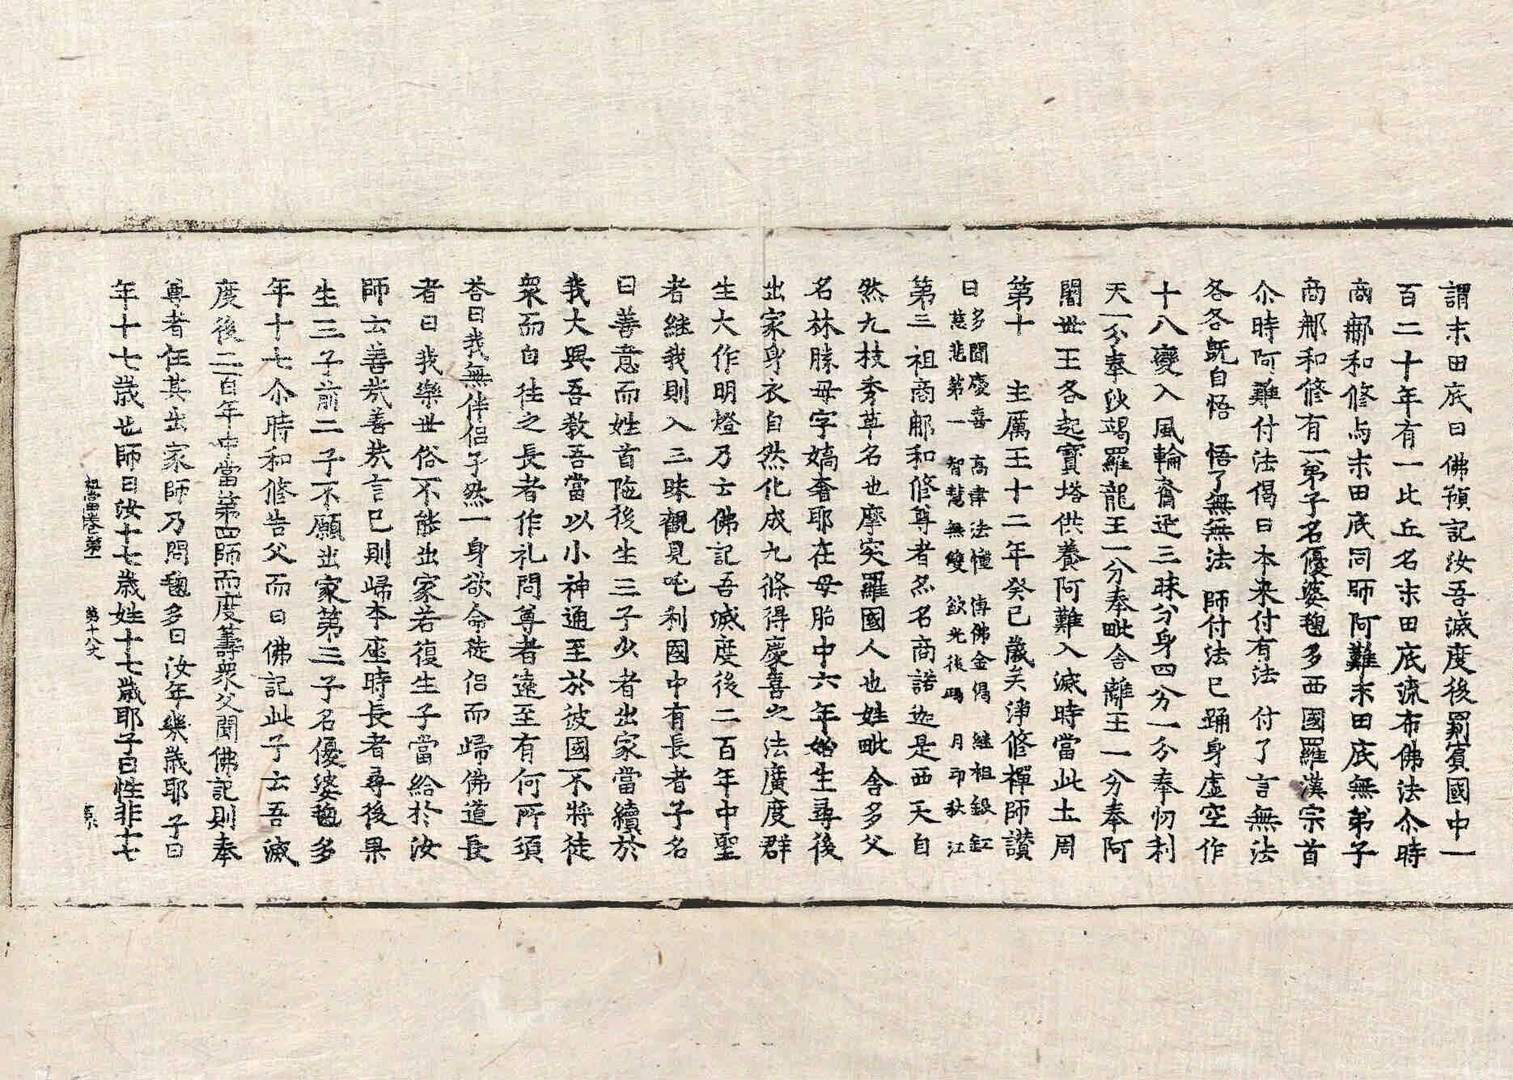 謂末田底曰佛預記汝吾滅度後罽賓國中一
百二十年有一比丘名末田底流布佛法尒時
商那和修与末田底同師阿難末田底無弟子
商那和修有一弟子名優婆毱多西國羅漢宗首
尒時阿難付法偈曰本來付有法 付了言無法
各各旣自悟 悟了無無法 師付法已踊身虛空作
十八變入風輪奮迅三昧分身四分一分奉忉利
天一分奉娑竭羅龍王一分奉毗舍離王一分奉阿
闍世王各起寶塔供養阿難入滅時當此土周
第十 主厲王十二年癸巳歲矣淨修禪師讚
曰多聞慶喜 高建法幢 傳佛金偈 継祖銀釭
慈悲第一 智慧無雙 飮光後鴫 月印秋江
第三祖商那和修尊者亦名商諾迦是西天自
然九枝秀草名也摩突羅國人也姓毗舍多父
名林勝母字嬌奢耶在母胎中六年始生尋後
出家身衣自然化成九條得慶喜之法廣度群
生大作明燈乃云佛記吾滅度後二百年中聖
者継我則入三昧觀見吒利國中有長者子名
曰善意而姓首陁後生三子少者出家當續於
我大興吾敎吾當以小神通至於彼國不將徒
衆而自往之長者作礼問尊者遠至有何所須
荅曰我無伴侶孑然一身欲命徒侶而歸佛道長
者曰我樂世俗不能出家若復生子當給於汝
師云善㢤善㢤言已則歸本座時長者尋後果
生三子前二子不願出家第三子名優婆毱多
年十七尒時和修告父而曰佛記此子云吾滅
度後二百年中當第四師而度籌衆父聞佛記則奉
尊者任其出家師乃問毱多曰汝年幾歲耶子曰
年十七歲也師曰汝十七歲姓十七歲耶子曰性非十七
祖堂卷第一 第十六丈